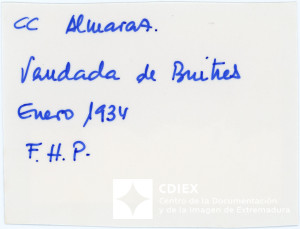 CC Almaraz.
Vandada de Buitres
Enero 1934
F.H.P.
CDIEX
Centro de la Documentación
y de la Imagen de Extremadura